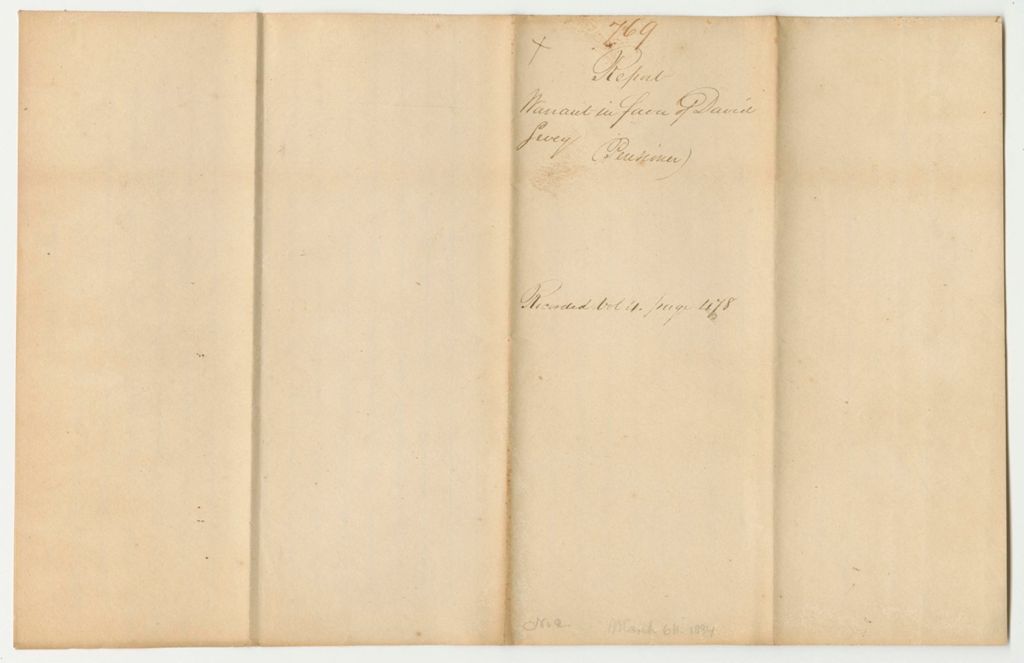 769
X
Report
Warrant in favor of David
Grvey
(Pensioner)
Recorded Vol 4. page 478
No 2
March 6th 1834